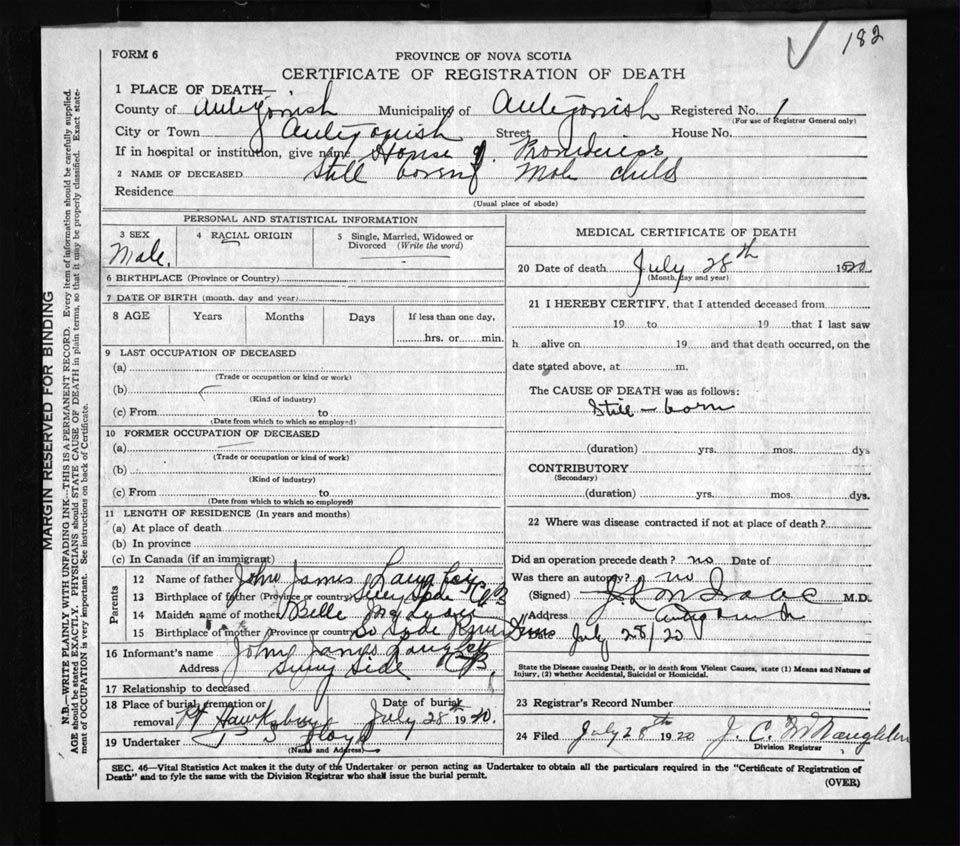 182
FORM 6
PROVINCE OF NOVA SCOTIA
CERTIFICATE OF REGISTRATION OF DEATH
1 PLACE OF DEATH—
County of Antigonish Municipality of Antigonish Registered No. 1
(For use of Registrar General only)
City or Town Antigonish Street House No.
If in hospital or institution, give name House of Providence
2 NAME OF DECEASED Still born Male child
Residence
(Usual place of abode)
PERSONAL AND STATISTICAL INFORMATION
3 SEX 4 RACIAL ORIGIN 5 Single, Married, Widowed or Divorced (Write the word)
Male.
6 BIRTHPLACE (Province or Country)
7 DATE OF BIRTH (month, day and year)
8 AGE Years Months Days If less than one day,
hrs. or min.
9 LAST OCCUPATION OF DECEASED
(a)
(Trade or occupation or kind or work)
(b)
(Kind of industry)
(c) From to
(Date from which to which so employed)
10 FORMER OCCUPATION OF DECEASED
(a)
(Trade or occupation or kind of work)
(b)
(Kind of industry)
(c) From to
(Date from which to which so employed)
11 LENGTH OF RESIDENCE (In years and months)
(a) At place of death
(b) In province
(c) In Canada (if an immigrant)
Parents
12 Name of father John James
13 Birthplace of father (Province or country) Side C B
14 Maiden name of mother Belle
15 Birthplace of mother (Province or country)
16 Informant's name John James
Address Sunny Side C B
17 Relationship to deceased
18 Place of burial, cremation or removal Pt Hawksbury Date of burial July 28th 1920.
19 Undertaker Floyd
(Name and Address)
MEDICAL CERTIFICATE OF DEATH
20 Date of death July 28th 1920
(Month, day and year)
21 I HEREBY CERTIFY, that I attended deceased from
19 to 19 that I last saw
h alive on 19 and that death occurred, on the
date stated above, at m.
The CAUSE OF DEATH was as follows:
Still-born
(duration) yrs. mos. dys
CONTRIBUTORY
(Secondary)
(duration) yrs. mos. dys.
22 Where was disease contracted if not at place of death?
Did an operation precede death? no Date of
Was there an autopsy? no
(Signed) M.D.
Address Antigonish
July 28/20
State the Disease causing Death, or in death from Violent Causes, state (1) Means and Nature of
Injury, (2) whether Accidental, Suicidal or Homicidal.
23 Registrar's Record Number
24 Filed July 28th 1920 J. C.
Division Registrar
SEC. 46—Vital Statistics Act makes it the duty of the Undertaker or person acting as Undertaker to obtain all the particulars required in the "Certificate of Registration of
Death" and to fyle the same with the Division Registrar who shall issue the burial permit.
(OVER)
MARGIN RESERVED FOR BINDING
N.B.—WRITE PLAINLY WITH UNFADING INK—THIS IS A PERMANENT RECORD. Every item of information should be carefully supplied.
AGE should be stated EXACTLY. PHYSICIANS should STATE CAUSE OF DEATH in plain terms, so that it may be properly classified. Exact statement of OCCUPATION is very important. See instructions on back of Certificate.